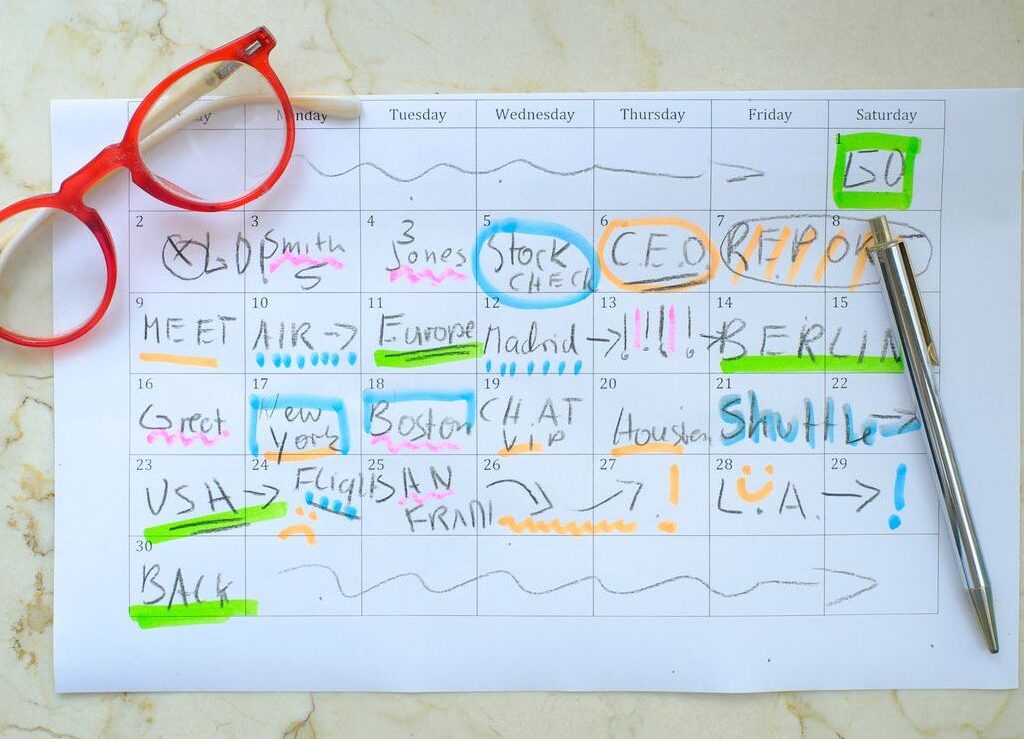 Tuesday Wednesday Thursday Friday Saturday
1
GO
2 3 4 5 6 7 8
Smith 3 Stock C.E.O REPORT
5 Jones CHECK
9 10 11 12 13 14 15
MEET AIR → Europe Madrid → !!!! → BERLIN
16 17 18 19 20 21 22
Greet New Boston CHAT Houston Shuttle →
York VIP
23 24 25 26 27 28 29
USA → SAN ! L.A. → !
FRAN
30
BACK